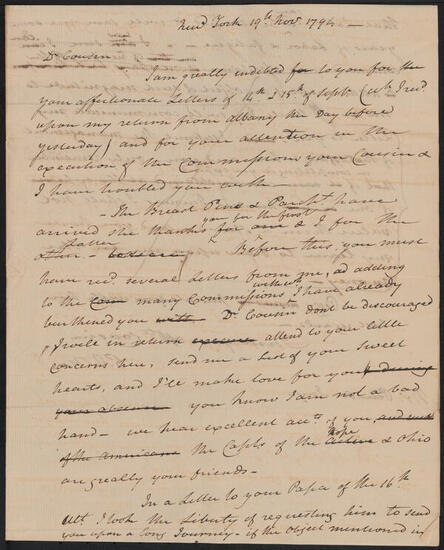 New York 19th Novr. 1794 —
Dr. Cousin
I am greatly indebted for to you for the
your affectionate Letters of 14th & 15th of Septr. (wh. I recd.
upon my return from albany the Day before
yesterday) and for your attention in the
execution of the Commissions your Cousin &
I have troubled you with —
— The Breast Pins & Parcht have
arrived she thanks you for the first & I for the
latter — Before this, you must
have recd. several Letters from me, adding
to the many Commissions with wh. I have already
burthened you Dr. Cousin dont be discouraged
I will in return attend to your little
concerns here, send me a list of your sweet
hearts, and I'll make love for you during
your absence you know I am not a bad
hand — we hear excellent acctts. of you, and
of the Americans the Capts of the Hope & Ohio
are greatly your friends —
In a Letter to your Papa of the 16th
Ult. I took the Liberty of requesting him to send
you upon a long Journey — if the Object mentioned in